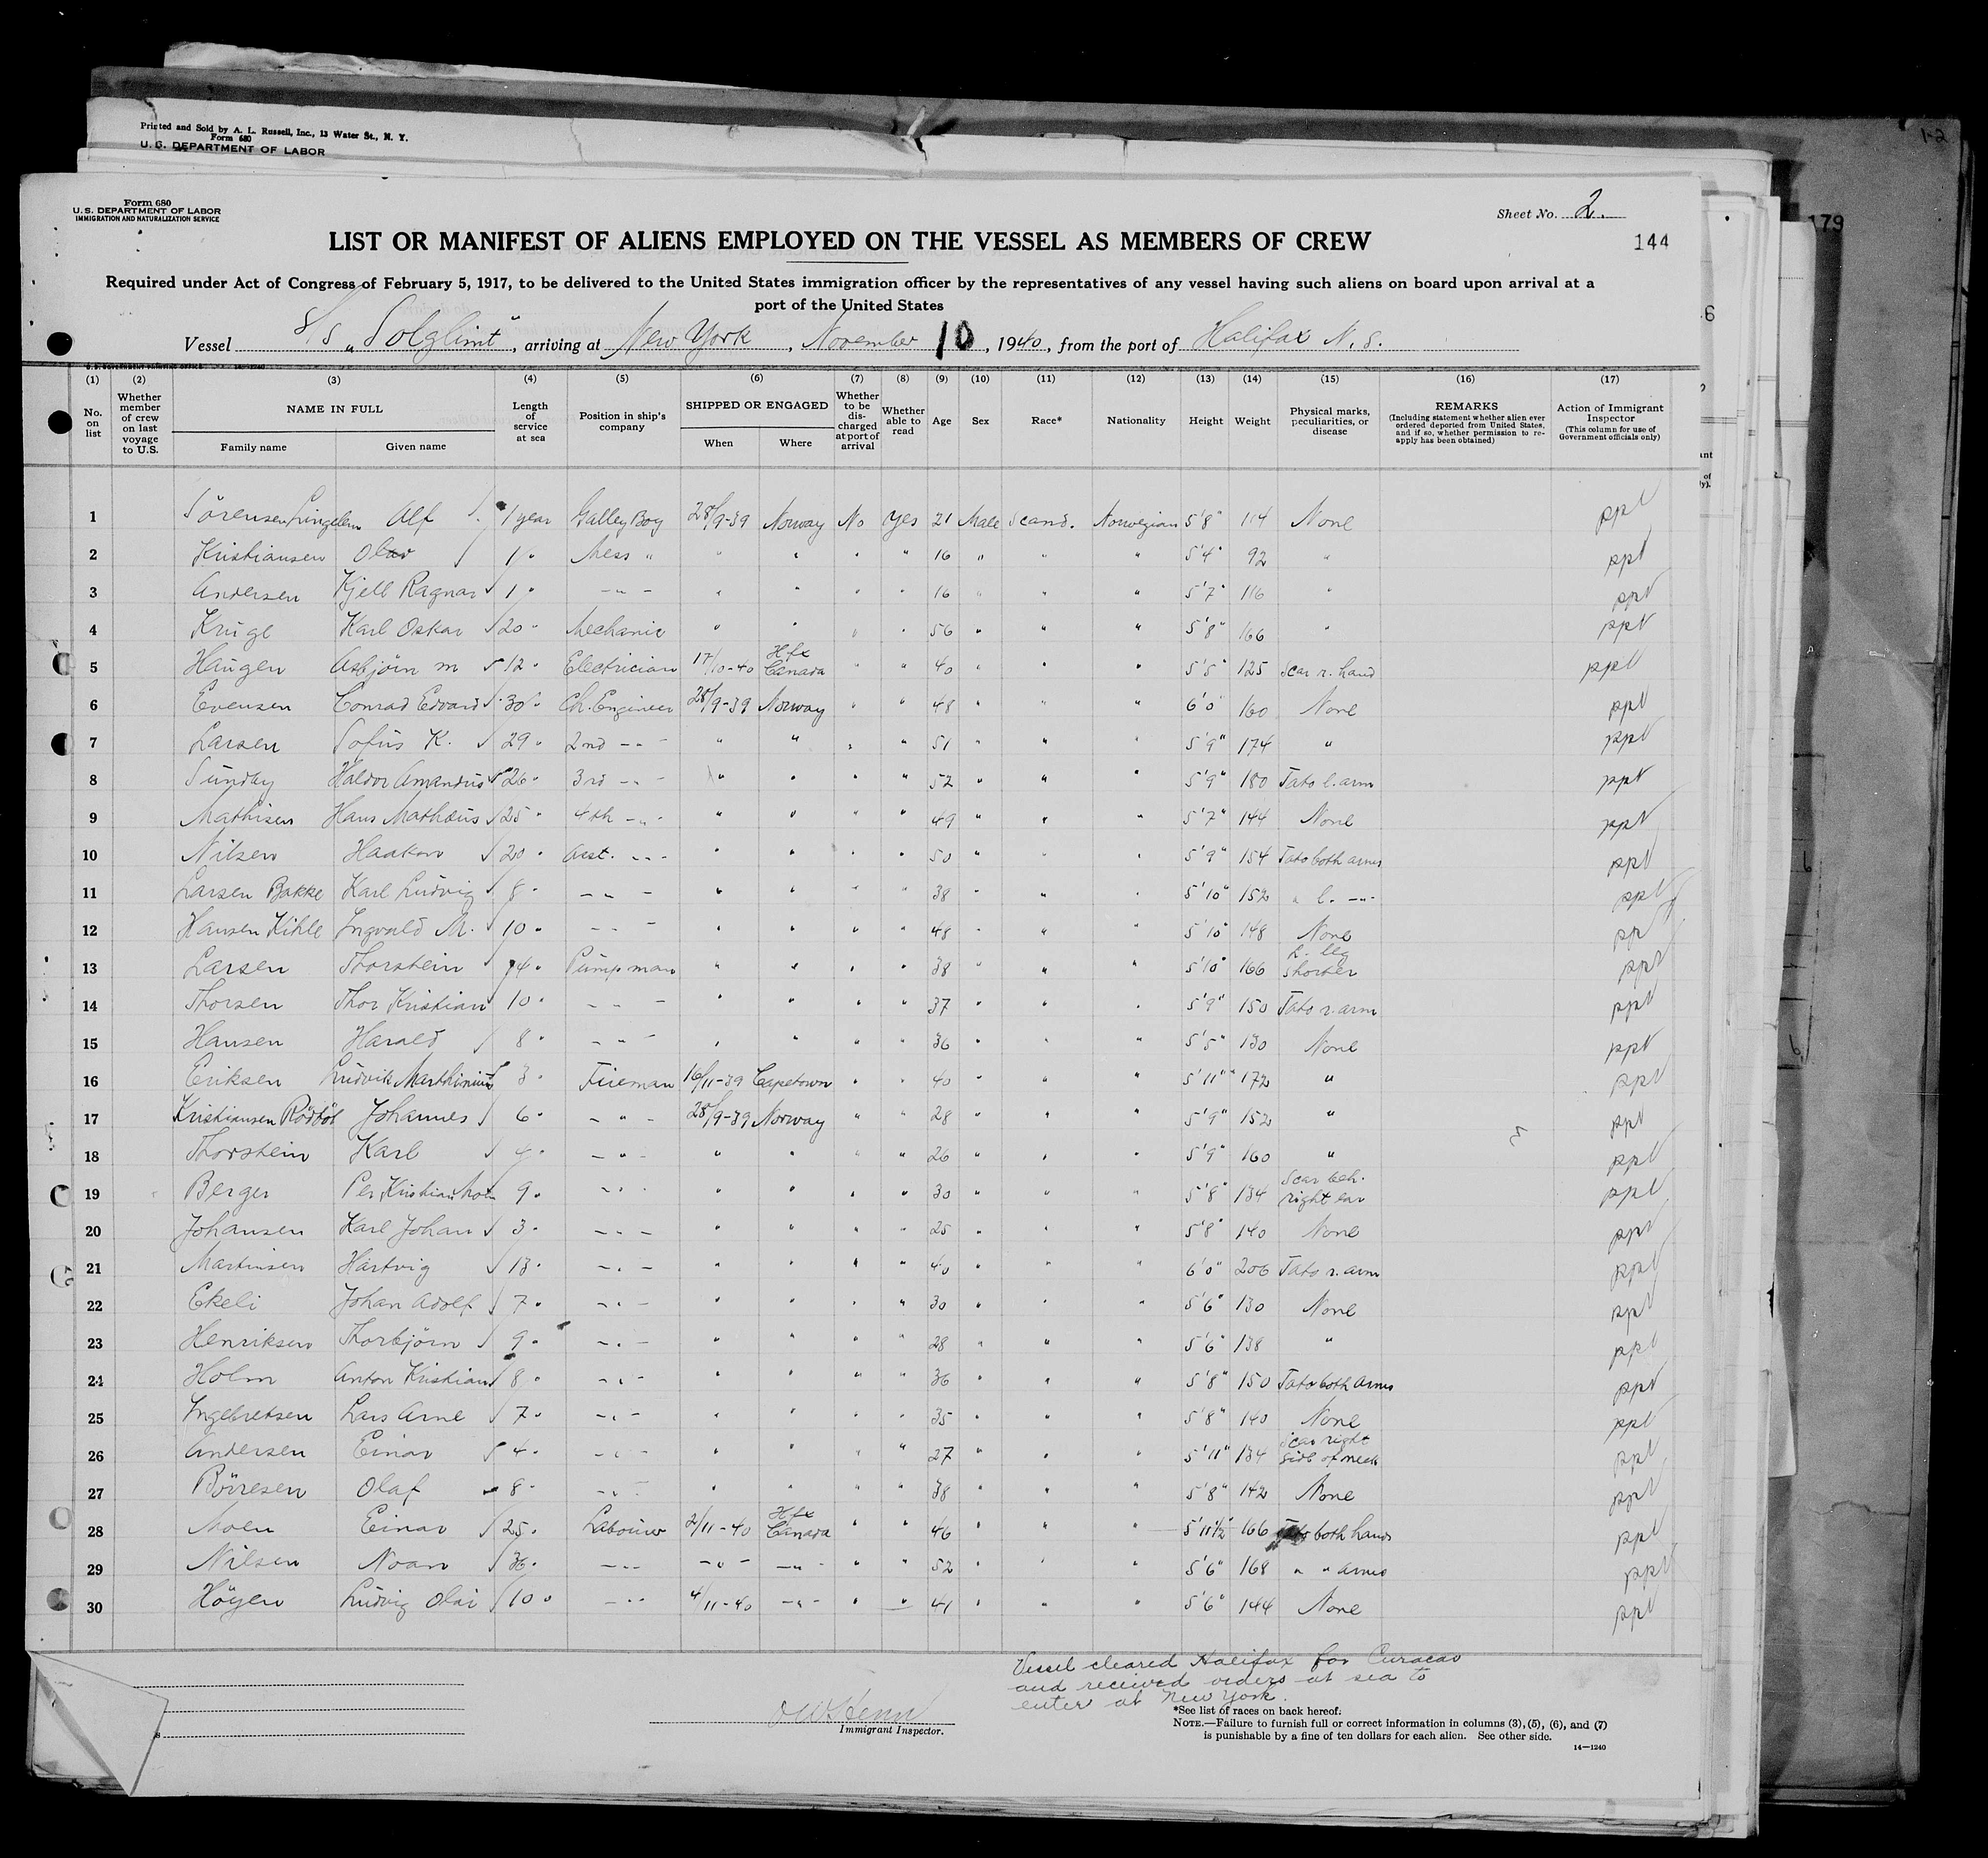 Printed and Sold by A. L. Russell, Inc., 13 Water St., N. Y.
Form 680
U. S. DEPARTMENT OF LABOR
1-2
179
Form 680
U. S. DEPARTMENT OF LABOR
IMMIGRATION AND NATURALIZATION SERVICE
Sheet No. 2.
LIST OR MANIFEST OF ALIENS EMPLOYED ON THE VESSEL AS MEMBERS OF CREW
144
Required under Act of Congress of February 5, 1917, to be delivered to the United States immigration officer by the representatives of any vessel having such aliens on board upon arrival at a
port of the United States
Vessel S/S „Solglimt", arriving at New York, November 10, 1940, from the port of Halifax N. S.
(1) (2) (3) (4) (5) (6) (7) (8) (9) (10) (11) (12) (13) (14) (15) (16) (17)
No. on list Whether member of crew on last voyage to U.S. NAME IN FULL Family name Given name Length of service at sea Position in ship's company SHIPPED OR ENGAGED When Where Whether to be discharged at port of arrival Whether able to read Age Sex Race* Nationality Height Weight Physical marks, peculiarities, or disease REMARKS (Including statement whether alien ever ordered deported from United States, and if so, whether permission to reapply has been obtained) Action of Immigrant Inspector (This column for use of Government officials only)
1 Sörensen Lingelem Alf 1 year Galley Boy 28/9-39 Norway No Yes 21 Male Scand. Norwegian 5'8" 114 None ppt
2 Kristiansen Olav 1 " Mess " " " " " 16 " " " 5'4" 92 " ppt
3 Andersen Kjell Ragnar 1 " - " - " " " " 16 " " " 5'7" 116 " ppt
4 Kruge Karl Oskar 20 " Mechanic " " " " 56 " " " 5'8" 166 " ppt
5 Haugen Asbjörn M 12 " Electrician 17/10-40 Hfx Canada " " 40 " " " 5'5" 125 Scar r. hand ppt
6 Evensen Conrad Edvard 30 " Ch. Engineer 28/9-39 Norway " " 48 " " " 6'0 160 None ppt
7 Larsen Sofus K. 29 " 2nd - " - " " " " 51 " " " 5'9" 174 " ppt
8 Sundby Haldor Amandus 26 " 3rd - " - " " " " 52 " " " 5'9" 180 Tato l. arm ppt
9 Mathisen Hans Mathæus 25 " 4th - " - " " " " 49 " " " 5'7" 144 None ppt
10 Nilsen Haakon 20 " Asst. - " - " " " " 50 " " " 5'9" 154 Tato both arms ppt
11 Larsen Bakke Karl Ludvig 8 " - " - " " " " 38 " " " 5'10" 152 " l. - " - ppt
12 Hansen Kihle Ingvald M. 10 " - " - " " " " 48 " " " 5'10" 148 None ppt
13 Larsen Thorstein 14 " Pumpman " " " " 38 " " " 5'10" 166 R. leg shorter ppt
14 Thorsen Thor Kristian 10 " - " - " " " " 37 " " " 5'9" 150 Tato r. arm ppt
15 Hansen Harald 8 " - " - " " " " 36 " " " 5'5" 130 None ppt
16 Eriksen Ludvik Marthinius 3 " Fireman 16/11-39 Capetown " " 40 " " " 5'11" 172 " ppt
17 Kristiansen Rödböl Johannes 6 " - " - 28/9-39 Norway " " 28 " " " 5'9" 152 " ppt
18 Thorstein Karl 4 " - " - " " " " 26 " " " 5'9" 160 " ppt
19 Berger Per Kristian 9 " - " - " " " " 30 " " " 5'8" 134 Scar beh. right ear ppt
20 Johansen Karl Johan 3 " - " - " " " " 25 " " " 5'8" 140 None ppt
21 Martinsen Hartvig 13 " - " - " " " " 40 " " " 6'0" 206 Tato r. arm ppt
22 Ekeli Johan Adolf 7 " - " - " " " " 30 " " " 5'6" 130 None ppt
23 Henriksen Thorbjörn 9 " - " - " " " " 28 " " " 5'6" 138 " ppt
24 Holm Anton Kristian 8 " - " - " " " " 36 " " " 5'8" 150 Tato both arms ppt
25 Ingebretsen Lars Arne 7 " - " - " " " " 35 " " " 5'8" 140 None ppt
26 Andersen Einar 4 " - " - " " " " 27 " " " 5'11" 134 Scar right side of neck ppt
27 Börresen Olaf 8 " - " - " " " " 38 " " " 5'8" 142 None ppt
28 Moen Einar 25 " Labourer 2/11-40 Hfx Canada " " 46 " " " 5'11½" 166 Tato both hands ppt
29 Nilsen Noan 36 " - " - - " - - " - " " 52 " " " 5'6" 168 " " arms ppt
30 Höyen Ludvig Olai 10 " - " - 4/11-40 - " - " " 41 " " " 5'6" 144 None ppt
Vessel cleared Halifax for Curacao
and received orders at sea to
enter at New York.
Immigrant Inspector.
*See list of races on back hereof.
NOTE.—Failure to furnish full or correct information in columns (3), (5), (6), and (7)
is punishable by a fine of ten dollars for each alien. See other side.
14—1240